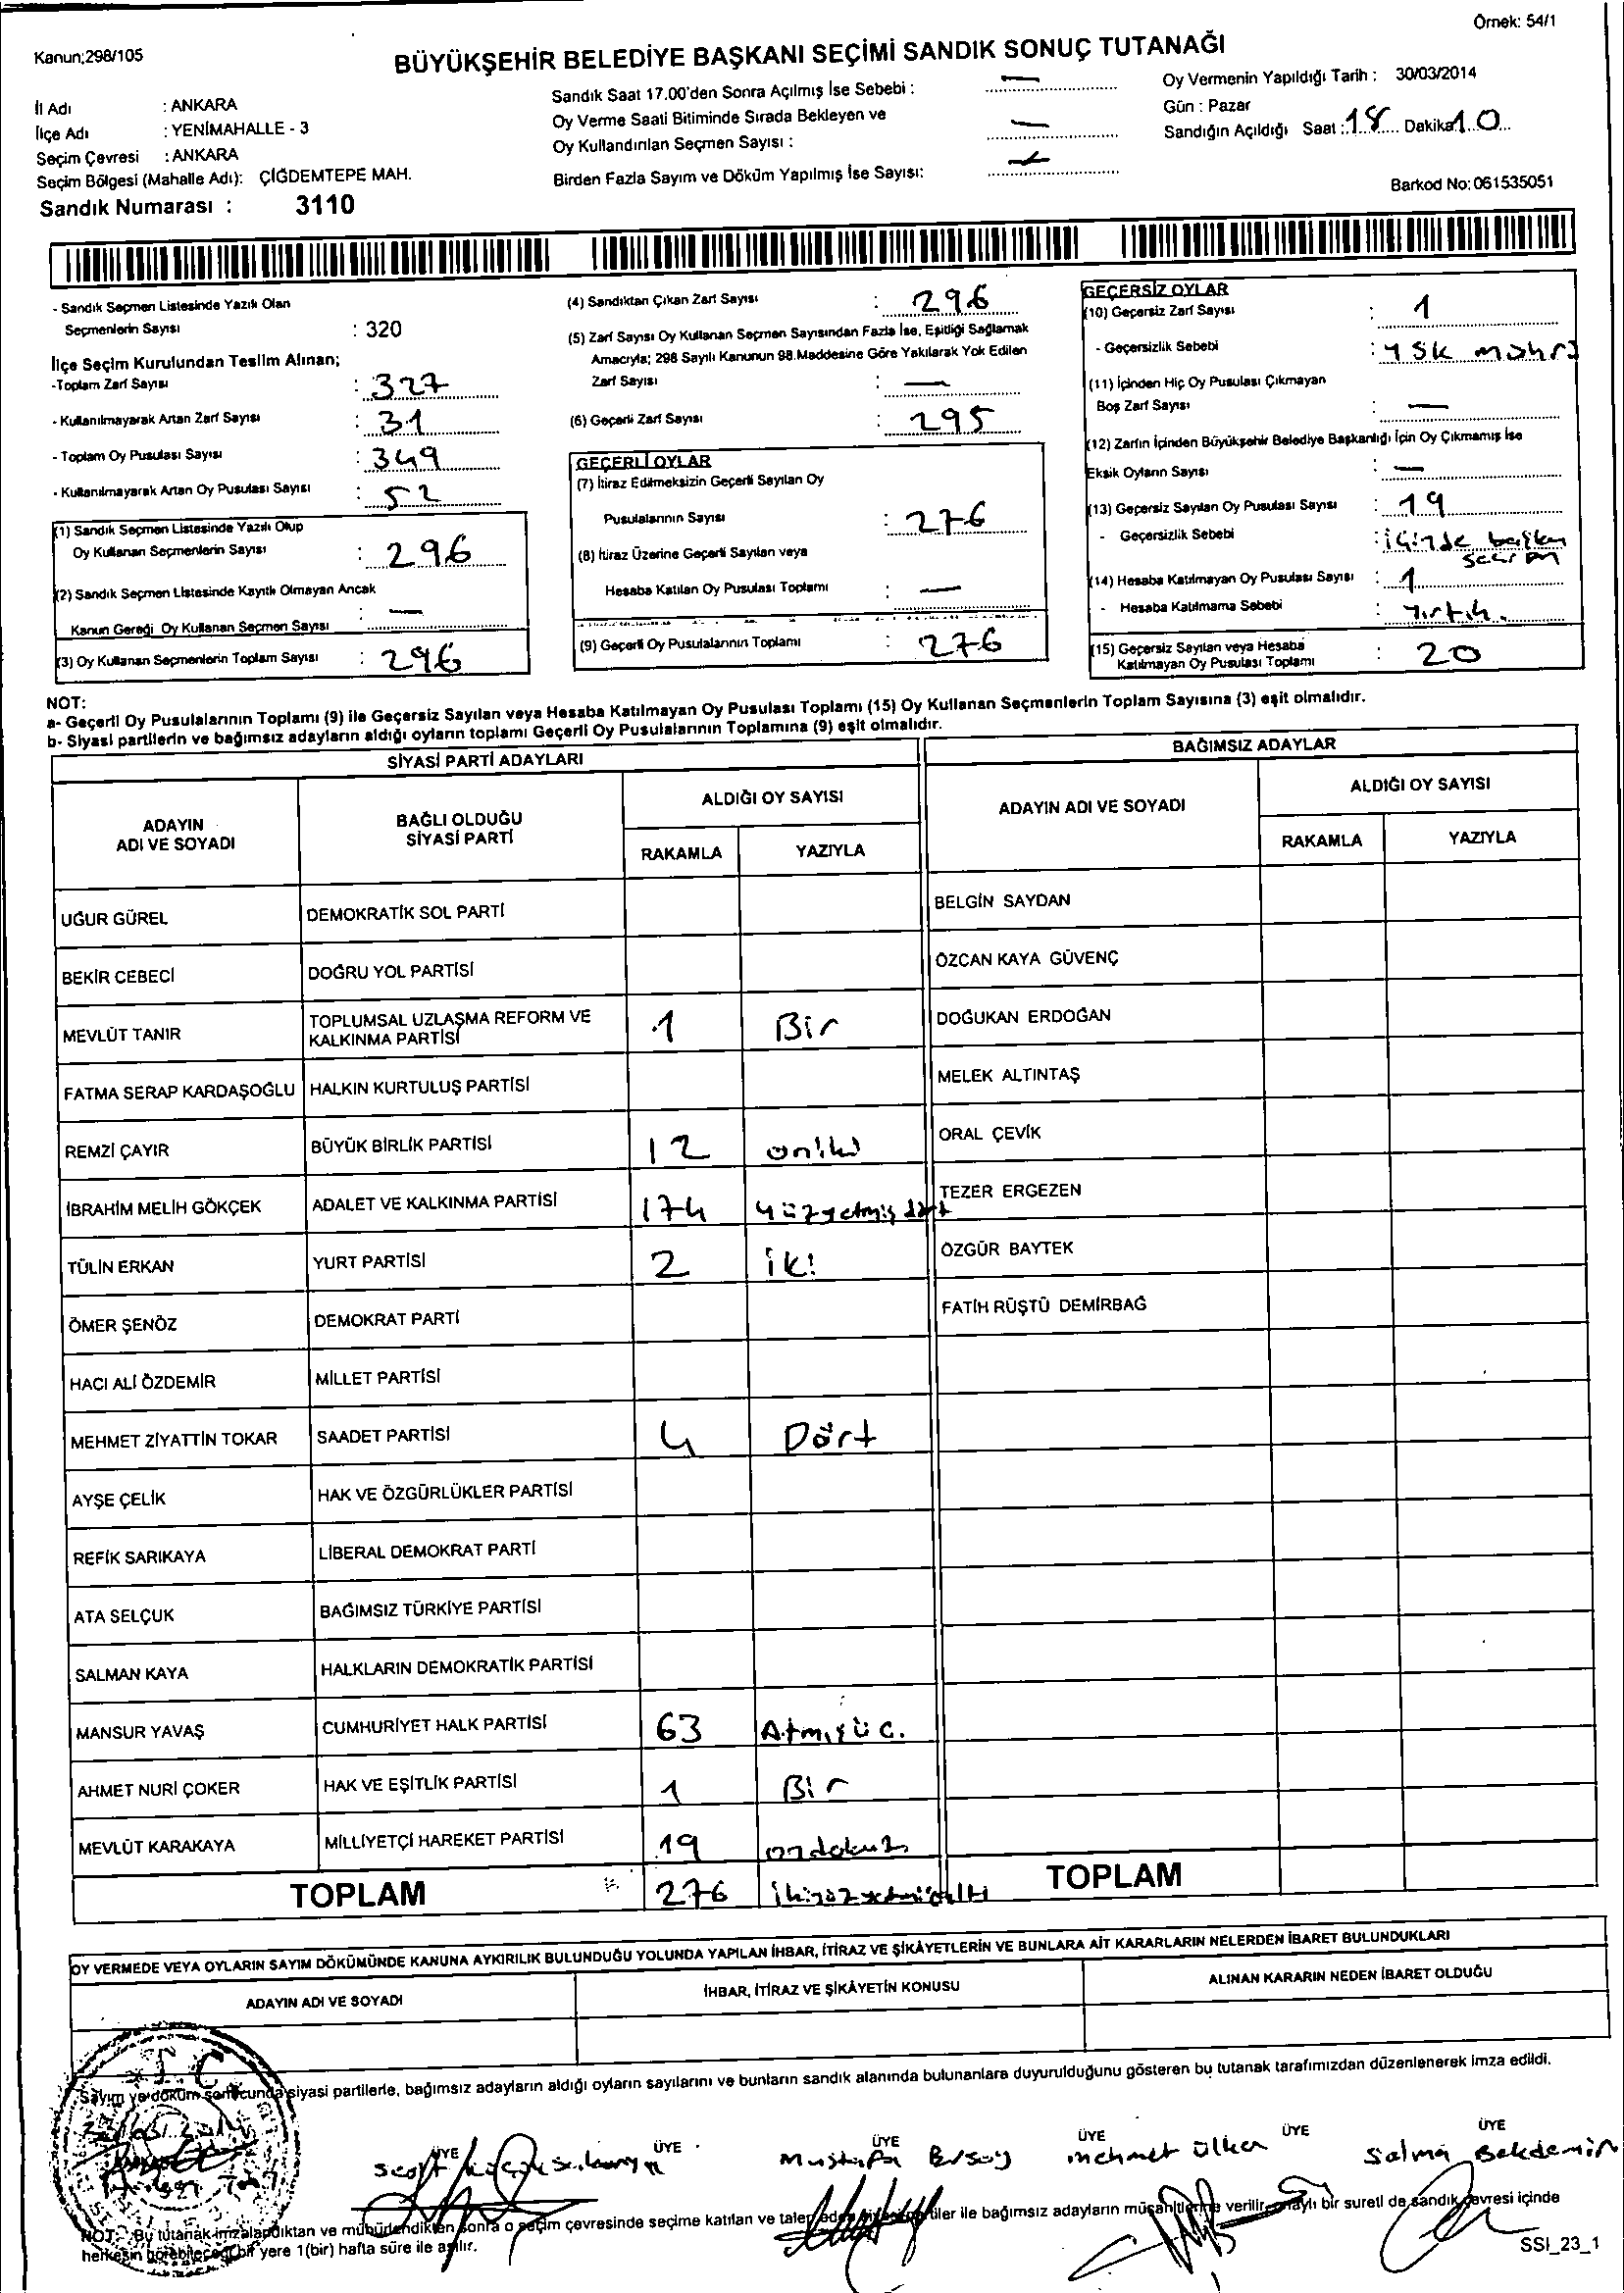 Örnek: 54/1
Kanun;298/105
BÜYÜKŞEHİR BELEDİYE BAŞKANI SEÇİMİ SANDIK SONUÇ TUTANAĞI
İl Adı : ANKARA
İlçe Adı : YENİMAHALLE - 3
Seçim Çevresi : ANKARA
Seçim Bölgesi (Mahalle Adı): ÇİĞDEMTEPE MAH.
Sandık Numarası : 3110
Sandık Saat 17.00'den Sonra Açılmış İse Sebebi : —
Oy Verme Saati Bitiminde Sırada Bekleyen ve
Oy Kullandırılan Seçmen Sayısı : —
Birden Fazla Sayım ve Döküm Yapılmış İse Sayısı: —
Oy Vermenin Yapıldığı Tarih : 30/03/2014
Gün : Pazar
Sandığın Açıldığı Saat : 18 Dakika 10
Barkod No: 061535051
- Sandık Seçmen Listesinde Yazılı Olan
Seçmenlerin Sayısı : 320
İlçe Seçim Kurulundan Teslim Alınan;
-Toplam Zarf Sayısı : 327
- Kullanılmayarak Artan Zarf Sayısı : 31
- Toplam Oy Pusulası Sayısı : 349
- Kullanılmayarak Artan Oy Pusulası Sayısı : 52
(1) Sandık Seçmen Listesinde Yazılı Olup
Oy Kullanan Seçmenlerin Sayısı : 296
(2) Sandık Seçmen Listesinde Kayıtlı Olmayan Ancak
Kanun Gereği Oy Kullanan Seçmen Sayısı : —
(3) Oy Kullanan Seçmenlerin Toplam Sayısı : 296
(4) Sandıktan Çıkan Zarf Sayısı : 296
(5) Zarf Sayısı Oy Kullanan Seçmen Sayısından Fazla İse, Eşitliği Sağlamak
Amacıyla; 298 Sayılı Kanunun 98.Maddesine Göre Yakılarak Yok Edilen
Zarf Sayısı : —
(6) Geçerli Zarf Sayısı : 295
GEÇERLİ OYLAR
(7) İtiraz Edilmeksizin Geçerli Sayılan Oy
Pusulalarının Sayısı : 276
(8) İtiraz Üzerine Geçerli Sayılan veya
Hesaba Katılan Oy Pusulası Toplamı : —
(9) Geçerli Oy Pusulalarının Toplamı : 276
GEÇERSİZ OYLAR
(10) Geçersiz Zarf Sayısı : 1
- Geçersizlik Sebebi : YSK
(11) İçinden Hiç Oy Pusulası Çıkmayan
Boş Zarf Sayısı : —
(12) Zarfın İçinden Büyükşehir Belediye Başkanlığı İçin Oy Çıkmamış İse
Eksik Oyların Sayısı : —
(13) Geçersiz Sayılan Oy Pusulası Sayısı : 19
- Geçersizlik Sebebi : içinde başka
(14) Hesaba Katılmayan Oy Pusulası Sayısı : 1
- Hesaba Katılmama Sebebi : Yırtık.
(15) Geçersiz Sayılan veya Hesaba
Katılmayan Oy Pusulası Toplamı : 20
NOT:
a- Geçerli Oy Pusulalarının Toplamı (9) ile Geçersiz Sayılan veya Hesaba Katılmayan Oy Pusulası Toplamı (15) Oy Kullanan Seçmenlerin Toplam Sayısına (3) eşit olmalıdır.
b- Siyasi partilerin ve bağımsız adayların aldığı oyların toplamı Geçerli Oy Pusulalarının Toplamına (9) eşit olmalıdır.
SİYASİ PARTİ ADAYLARI
ADAYIN ADI VE SOYADI
BAĞLI OLDUĞU SİYASİ PARTİ
ALDIĞI OY SAYISI
RAKAMLA YAZIYLA
UĞUR GÜREL DEMOKRATİK SOL PARTİ
BEKİR CEBECİ DOĞRU YOL PARTİSİ
MEVLÜT TANIR TOPLUMSAL UZLAŞMA REFORM VE KALKINMA PARTİSİ 1 Bir
FATMA SERAP KARDAŞOĞLU HALKIN KURTULUŞ PARTİSİ
REMZİ ÇAYIR BÜYÜK BİRLİK PARTİSİ 12 oniki
İBRAHİM MELİH GÖKÇEK ADALET VE KALKINMA PARTİSİ 174 yüzyetmiş dört
TÜLİN ERKAN YURT PARTİSİ 2 iki
ÖMER ŞENÖZ DEMOKRAT PARTİ
HACI ALİ ÖZDEMİR MİLLET PARTİSİ
MEHMET ZİYATTİN TOKAR SAADET PARTİSİ 4 Dört
AYŞE ÇELİK HAK VE ÖZGÜRLÜKLER PARTİSİ
REFİK SARIKAYA LİBERAL DEMOKRAT PARTİ
ATA SELÇUK BAĞIMSIZ TÜRKİYE PARTİSİ
SALMAN KAYA HALKLARIN DEMOKRATİK PARTİSİ
MANSUR YAVAŞ CUMHURİYET HALK PARTİSİ 63 Atmışüc.
AHMET NURİ ÇOKER HAK VE EŞİTLİK PARTİSİ 1 Bir
MEVLÜT KARAKAYA MİLLİYETÇİ HAREKET PARTİSİ 19 ondokuz
TOPLAM 276 ikiyüzyetmişaltı
BAĞIMSIZ ADAYLAR
ADAYIN ADI VE SOYADI
ALDIĞI OY SAYISI
RAKAMLA YAZIYLA
BELGİN SAYDAN
ÖZCAN KAYA GÜVENÇ
DOĞUKAN ERDOĞAN
MELEK ALTINTAŞ
ORAL ÇEVİK
TEZER ERGEZEN
ÖZGÜR BAYTEK
FATİH RÜŞTÜ DEMİRBAĞ
TOPLAM
OY VERMEDE VEYA OYLARIN SAYIM DÖKÜMÜNDE KANUNA AYKIRILIK BULUNDUĞU YOLUNDA YAPILAN İHBAR, İTİRAZ VE ŞİKÂYETLERİN VE BUNLARA AİT KARARLARIN NELERDEN İBARET BULUNDUKLARI
ADAYIN ADI VE SOYADI
İHBAR, İTİRAZ VE ŞİKÂYETİN KONUSU
ALINAN KARARIN NEDEN İBARET OLDUĞU
T.C
Sayım ve döküm sonucunda siyasi partilerle, bağımsız adayların aldığı oyların sayılarını ve bunların sandık alanında bulunanlara duyurulduğunu gösteren bu tutanak tarafımızdan düzenlenerek imza edildi.
ÜYE ÜYE ÜYE ÜYE ÜYE ÜYE
Mustafa Ersoy mehmet ülker Selma
NOT: Bu tutanak imzalandıktan ve mühürlendikten sonra o seçim çevresinde seçime katılan ve talep eden siyasi partiler ile bağımsız adayların müşahitlerine verilir, onaylı bir sureti de sandık çevresi içinde
herkesin görebileceği bir yere 1(bir) hafta süre ile asılır.
SSI_23_1